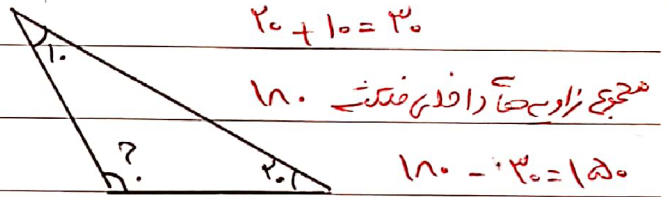 ۲۰ + ۱۰ = ۳۰
مجموع زاویه های داخلی مثلث ۱۸۰
۱۸۰ - ۳۰ = ۱۵۰
۱۰
?
۲۰